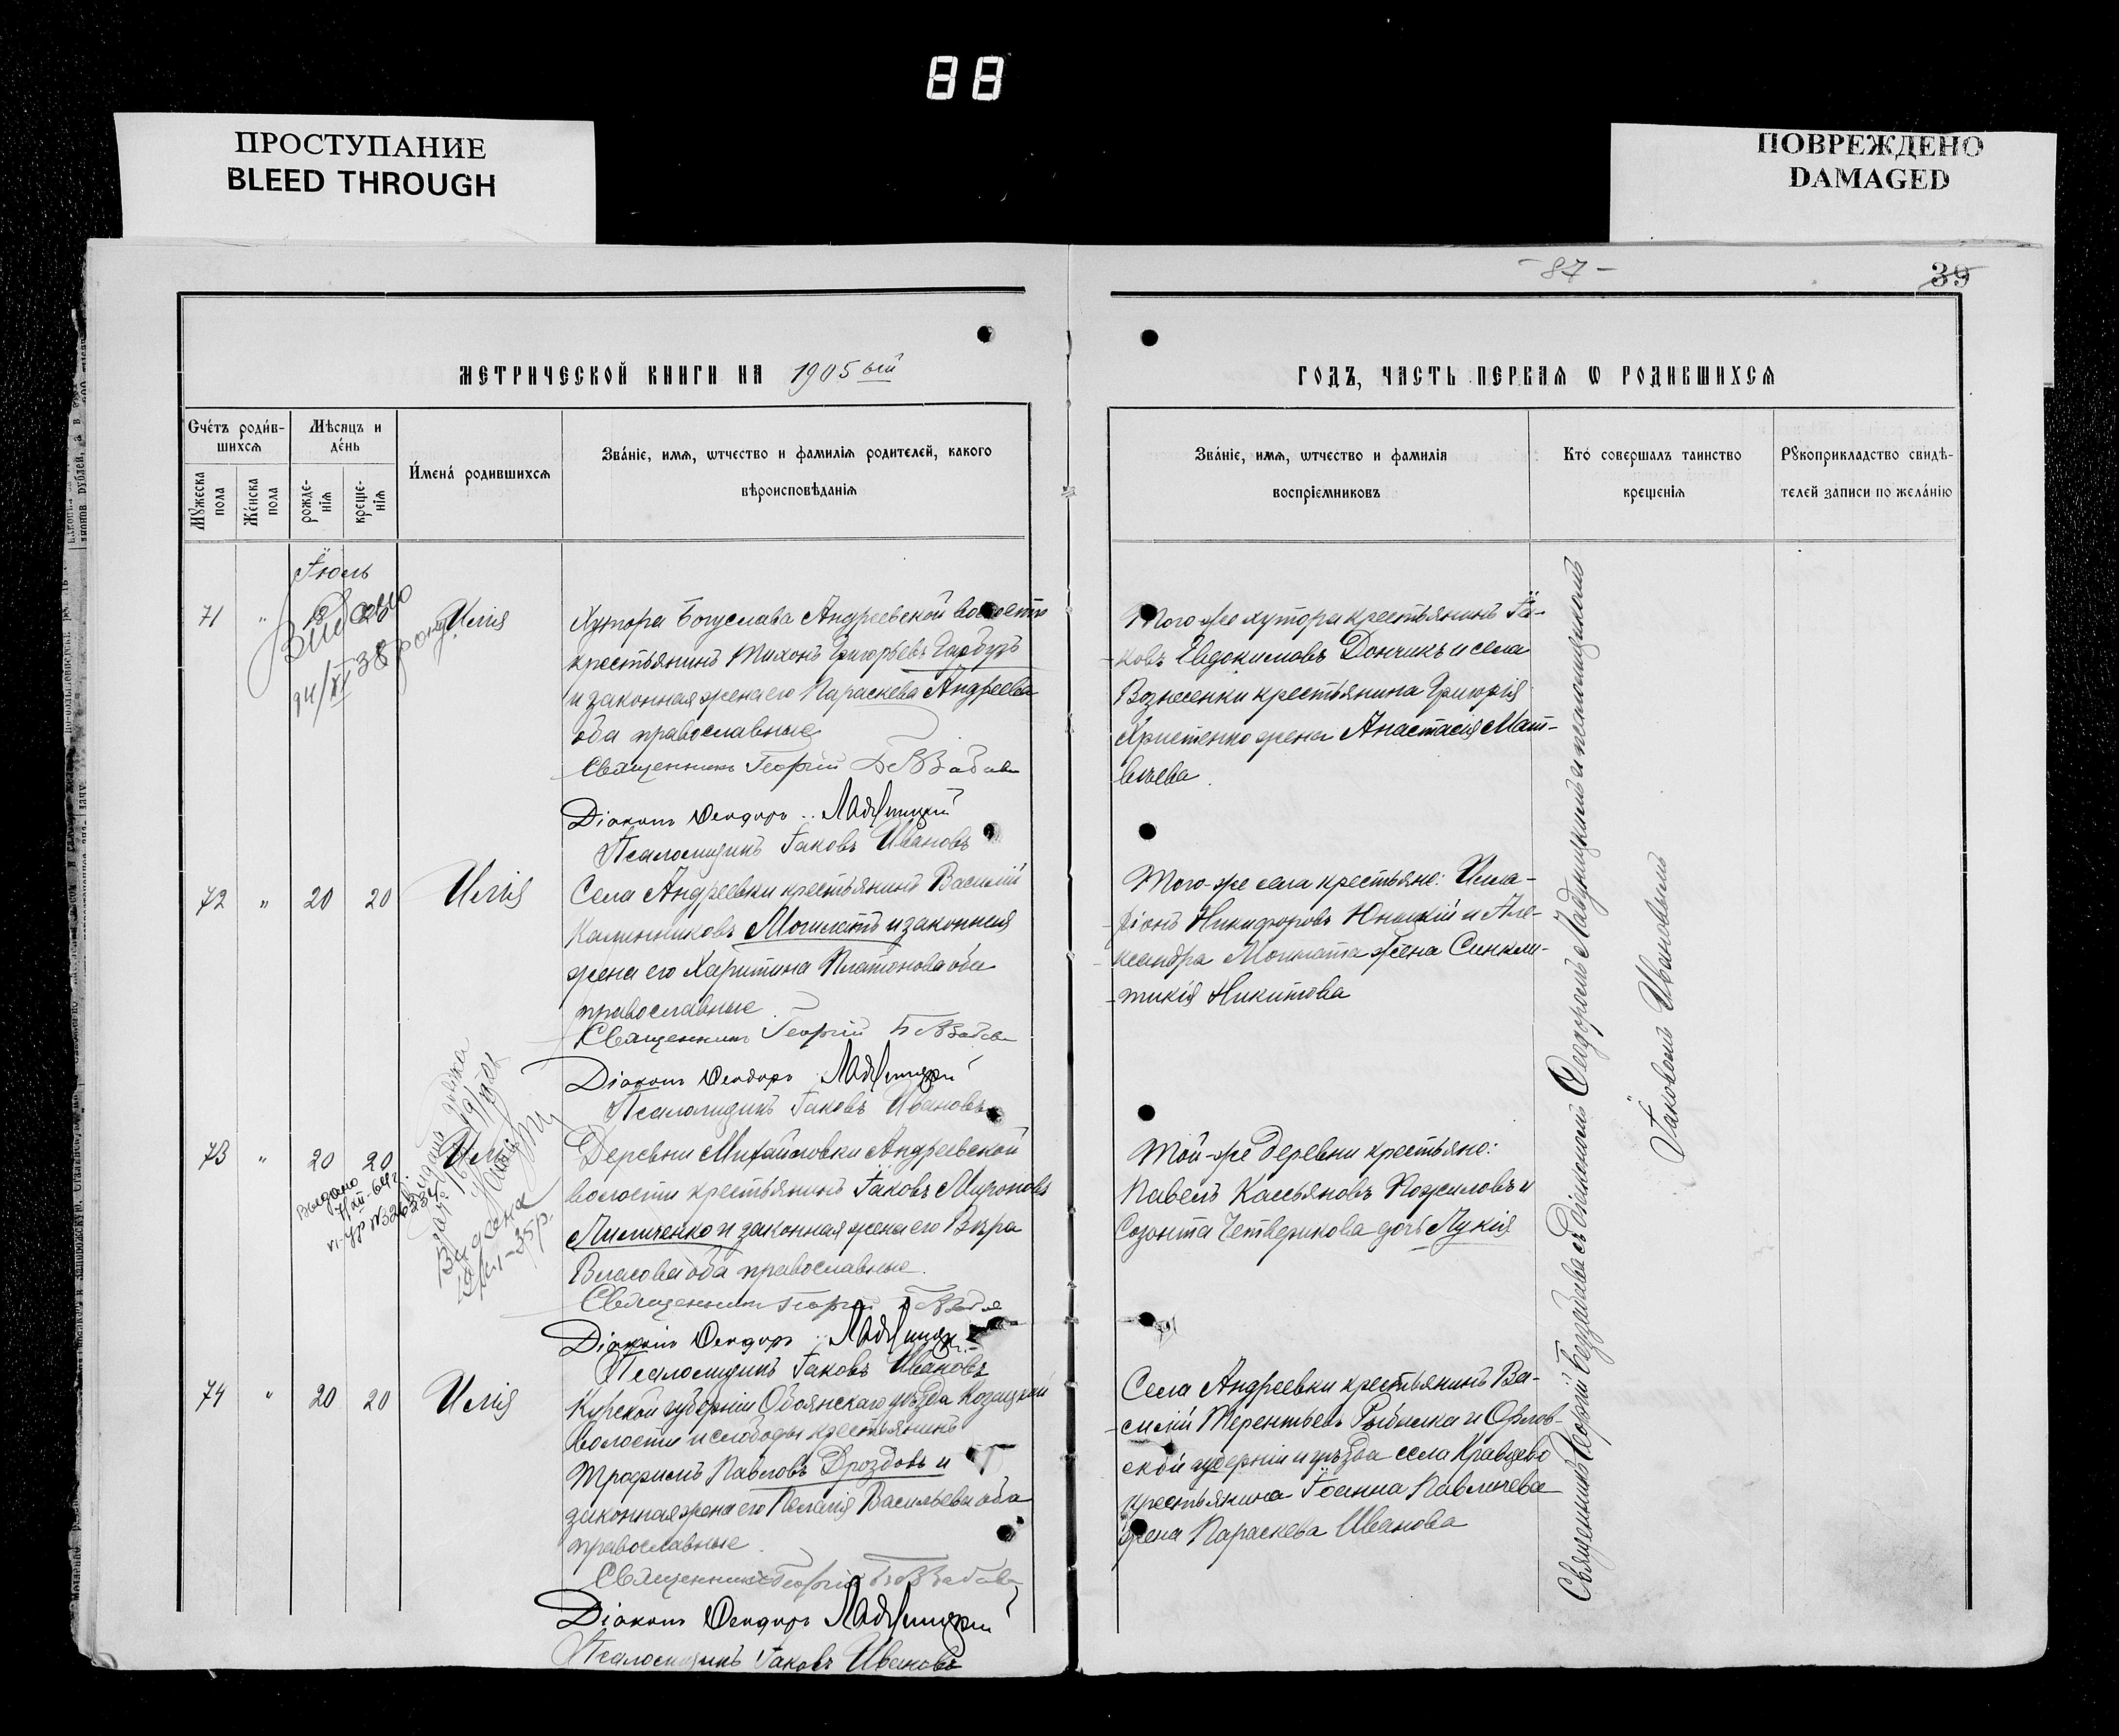 88
ПРОСТУПАНИЕ
BLEED THROUGH
ПОВРЕЖДЕНО
DAMAGED
- 87 -
39
МЕТРИЧЕСКОЙ КНИГИ НА 1905 ый
ГОДЪ, ЧАСТЬ ПЕРВАЯ Ѡ РОДИВШИХСЯ
Счétъ роди́в-
шихся
Мꙋжеска пола
Же́нска пола
Мѣсяцъ и
де́нь
рожде-
нїя
креще-
нїя
И́мена́ родившихся
Зва́нїе, имя, ѿчество и фамилїя родителей, какого
вѣроисповѣданїя
Зва́нїе, имя, ѿчество и фамилїя
воспрїемниковъ
Кто́ совершалъ таинство
крещенїя
Рꙋкоприкладство свидѣ-
телей записи по жела́нїю
Іюль
71 " Илія
Видано
24/XI 38 року.
Хутора Богуслава Андреевской волости
крестьянинъ Тихонъ Григорьевъ Гарбузъ
и законная жена его Параскева Андреева
оба православные
Священникъ Георгій Беззабава
Діаконъ Ѳеодоръ Ладухицкій
Псаломщикъ Іаковъ Ивановъ
Того-же хутора крестьянинъ Іа-
ковъ Евдокимовъ Дончикъ и села
Вознесенки крестьянина Григорія
Христенко жена Анастасія Мат-
вѣева.
72 " 20 20 Илія
Села Андреевки крестьянинъ Василій
Каллинниковъ Могилатъ и законная
жена его Харитина Платонова оба
православные.
Священникъ Георгій Беззабава
Діаконъ Ѳеодоръ
Псаломщикъ Іаковъ Ивановъ
Того-же села крестьяне: Илла-
ріонъ Никифоровъ Юницкій и Але-
ксандра Могилата жена Синкли-
тикія Никитова
73 " 20 20 Илія
Выдано
7/XII-64г.
Деревни Михайловки Андреевской
волости крестьянинъ Іаковъ Мироновъ
Лимиченко и законная жена его Вѣра
Власова оба православные.
Священникъ Георгій
Діаконъ Ѳеодоръ
Псаломщикъ Іаковъ Ивановъ
Той-же деревни крестьяне:
Павелъ Касьяновъ Пожиловъ и
Созонта Четверикова дочь Лукія
74 " 20 20 Илія
Курской губерніи Обоянскаго уѣзда Козацкой
волости и слободы крестьянинъ
Трофимъ Павловъ Дроздовъ и
законная жена его Пелагія Васильева оба
православные.
Священникъ Георгій Беззабава
Діаконъ Ѳеодоръ
Псаломщикъ Іаковъ Ивановъ
Села Андреевки крестьянинъ Ва-
силій Терентьевъ Рыбалка и Орлов-
ской губерніи и уѣзда села Кравцево
крестьянина Іоанна Павличева
жена Параскева Иванова
Священникъ Георгій Беззабава съ Діакономъ Ѳеодоромъ и псаломщикомъ
Іаковомъ Ивановымъ